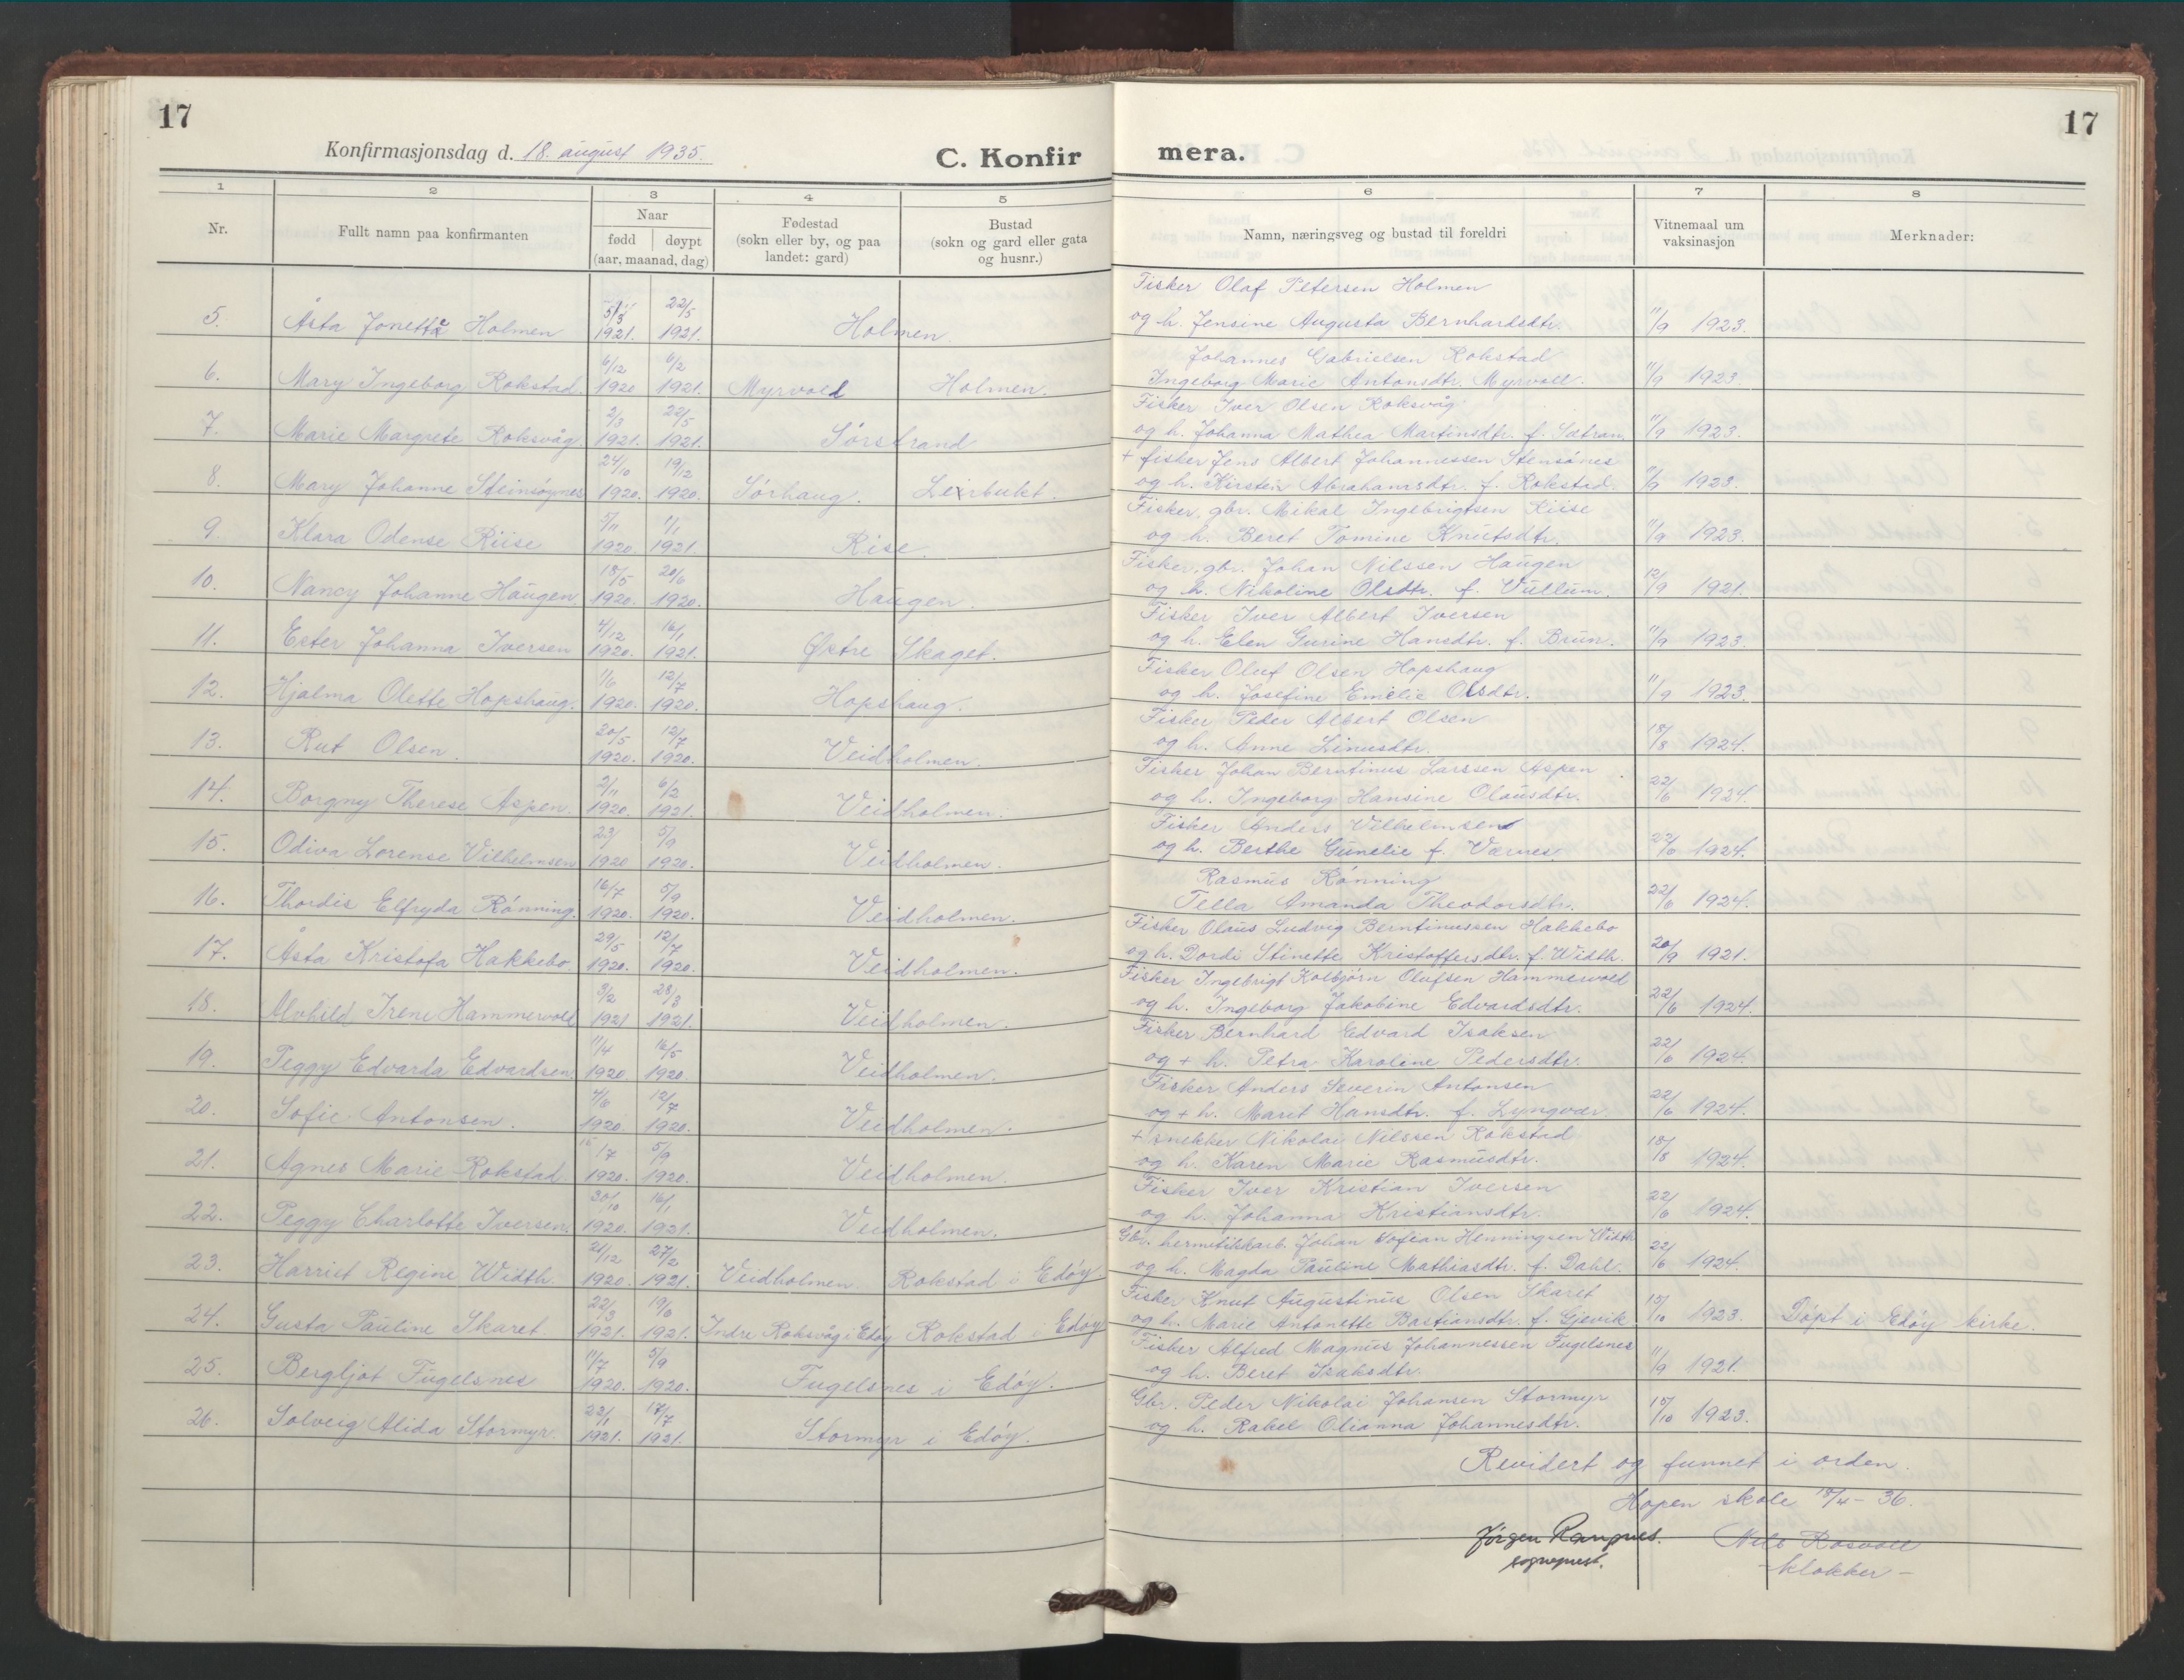 17
17
Konfirmasjonsdag d. 18. august 1935.
C. Konfir
mera.
1 2 3 4 5 6 7 8
Nr.
Fullt namn paa konfirmanten
Naar
fødd døypt
(aar, maanad, dag)
Fødestad
(sokn eller by, og paa
landet: gard)
Bustad
(sokn og gard eller gata
og husnr.)
Namn, næringsveg og bustad til foreldri
Vitnemaal um
vaksinasjon
Merknader:
Fisker Olaf Petersen Holmen
5. Åsta Jonette Holmen 1921. 22/5 1921. Holmen. og h. Jensine Augusta Bernhardsdtr. 11/9 1923.
Johannes Gabrielsen Rokstad
6. Mary Ingeborg Rokstad. 6/12 1920 6/2 1921. Myrvold Holmen. Ingeborg Marie Antonsdtr. Myrvoll. 11/9 1923.
Fisker Iver Olsen Roksvåg
7. Marie Margrete Roksvåg 2/3 1921. 22/5 1921. Sørstrand og h. Johanna Mathea Martinsdtr. f. Sætran. 11/9 1923.
+ fisker Jens Albert Johannessen Stensönes
8. Mary Johanne Steinsøynes 24/10 1920. 19/12 1920. Sörhaug. Leirbukt. og h. Kirstin Abrahamsdtr. f. Rokstad. 11/9 1923.
Fisker, gbr. Mikal Ingebrigtsen Riise
9. Klara Odense Riise 5/11 1920. 1/1 1921. Rise. og h. Beret Tomine Knutsdtr. 11/9 1923.
Fisker, gbr. Johan Nilssen Haugen
10. Nancy Johanne Haugen. 18/5 1920. 20/6 1920. Haugen. og h. Nikoline Olsdtr. f. Vullum. 12/9 1921.
Fisker Iver Albert Iversen
11. Ester Johanna Iversen 4/12 1920. 16/1 1921. Østre Skaget. og h. Elen Gurine Hansdtr. f. Brun. 11/9 1923.
Fisker Oluf Olsen Hopshaug
12. Hjalma Olette Hopshaug. 1/6 1920. 12/7 1920. Hopshaug. og h. Josefine Emelie Olsdtr. 11/9 1923.
Fisker Peder Albert Olsen
13. Rut Olsen. 20/5 1920. 12/7 1920. Veidholmen. og h. Anne Linusdtr. 18/8 1924.
Fisker Johan Berntinus Larssen Aspen
14. Borgny Therese Aspen. 2/11 1920. 6/2 1921. Veidholmen. og h. Ingeborg Hansine Olausdtr. 22/6 1924.
Fisker Anders Vilhelmsen
15. Odiva Lorense Vilhelmsen 23/ 1920 5/9 1920. Veidholmen. og h. Berthe Gunelie f. Værnes. 22/6 1924.
Rasmus Rönning
16. Thordis Elfryda Rönning. 16/7 1920. 5/9 1920. Veidholmen. Tella Amanda Theodorsdtr. 22/6 1924.
Fisker Olaus Ludvig Berntinussen Hakkebo
17. Åsta Kristofa Hakkebo. 29/5 1920. 12/7 1920. Veidholmen. og h. Dordi Stinette Kristoffersdtr. f. Width. 20/9 1921.
Fisker Ingebrigt Kolbjörn Olufsen Hammervold
18. Alvhild Irene Hammervold 3/2 1921 28/3 1921. Veidholmen. og h. Ingeborg Jakobine Edvardsdtr. 22/6 1924.
Fisker Bernhard Edvard Isaksen
19. Peggy Edvarda Edvardsen. 11/4 1920. 16/5 1920. Veidholmen. og + h. Petra Karoline Pedersdtr. 22/6 1924.
Fisker Anders Severin Antonsen
20. Sofie Antonsen. 4/6 1920. 12/7 1920. Veidholmen. og + h. Marit Hansdtr. f. Lyngvær. 22/6 1924.
+ snekker Nikolai Nilssen Rokstad
21. Agnes Marie Rokstad. 15/7 1920. 5/9 1920. Veidholmen. og h. Karen Marie Rasmusdtr. 18/8 1924.
Fisker Iver Kristian Iversen
22. Peggy Charlotte Iversen. 30/10 1920. 16/1 1921. Veidholmen. og h. Johanna Kristiansdtr. 22/6 1924.
Gbr. hermetikkarb. Johan Henningsen Width
23. Harriet Regine Width. 21/12 1920. 27/2 1921. Veidholmen Rokstad i Edøy og h. Magda Pauline Mathiasdtr. f. Dahl. 22/6 1924.
Fisker Knut Augustinus Olsen Skaret
24. Gusta Pauline Skaret 22/3 1921. 19/6 1921. Indre Roksvåg i Edøy Rokstad i Edøy og h. Marie Antonette Bastiansdtr. f. Gjevik 15/10 1923. Döpt i Edöy kirke.
Fisker Alfred Magnus Johannessen Fugelsnes
25. Bergljot Fugelsnes 11/7 1920. 5/9 1920. Fugelsnes i Edöy. og h. Beret Isaksdtr. 11/9 1921.
Gbr. Peder Nikolai Johansen Stormyr
26. Solveig Alida Stormyr. 23/1 1921. 17/7 1921. Stormyr i Edöy. og h. Rakel Olianna Johannesdtr. 15/10 1923.
Revidert og funnet i orden.
Hopen skole 18/4 - 36.
Jørgen Rangnes. Nils Rosvoll
sogneprest. - klokker -